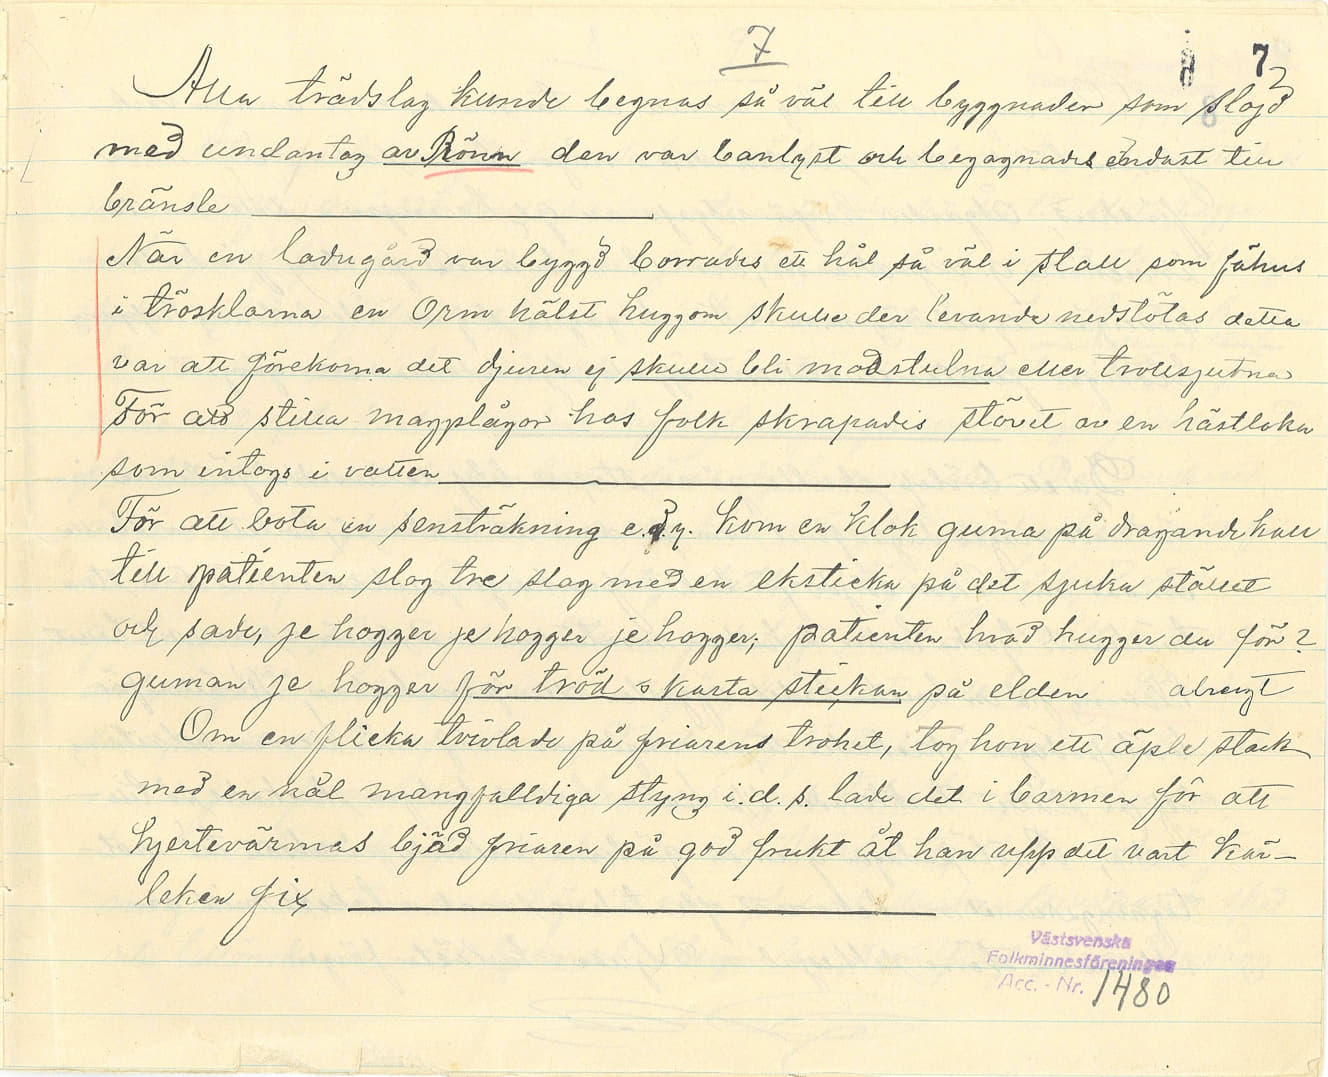 7
7
Alla trädslag kunde begnas så väl till byggnader som slöjd
med undantag av Rönn den var banlyst och begagnades endast till
bränsle
När en ladugård var byggd borrades ett hål så väl i stall som fähus
i trösklarna en Orm hälst huggom skulle der levande nedstötas detta
var att förekoma det djuren ej skulle bli modstulna eller trollsjutna
För att stilla magplågor hos folk skrapades stövet av en hästloka
som intogs i vatten
För att bota en sensträkning e.d.y. kom en klok guma på dragande kall
till patienten slog tre slag med en eksticka på det sjuka stället
och sade, je hogger je hogger je hogger; patienten hvad hugger du för?
guman je hogger för tröd o kasta stickan på elden
Om en flicka tvivlade på friarens trohet, tog hon ett äple stack
med en nål mangfalldiga styng i.d.s. lade det i barmen för att
hjertevärmas bjöd friaren på god frukt åt han upp det vart kär-
leken fix
Västsvenska
Folkminnesföreningen
Acc. - Nr. 1480